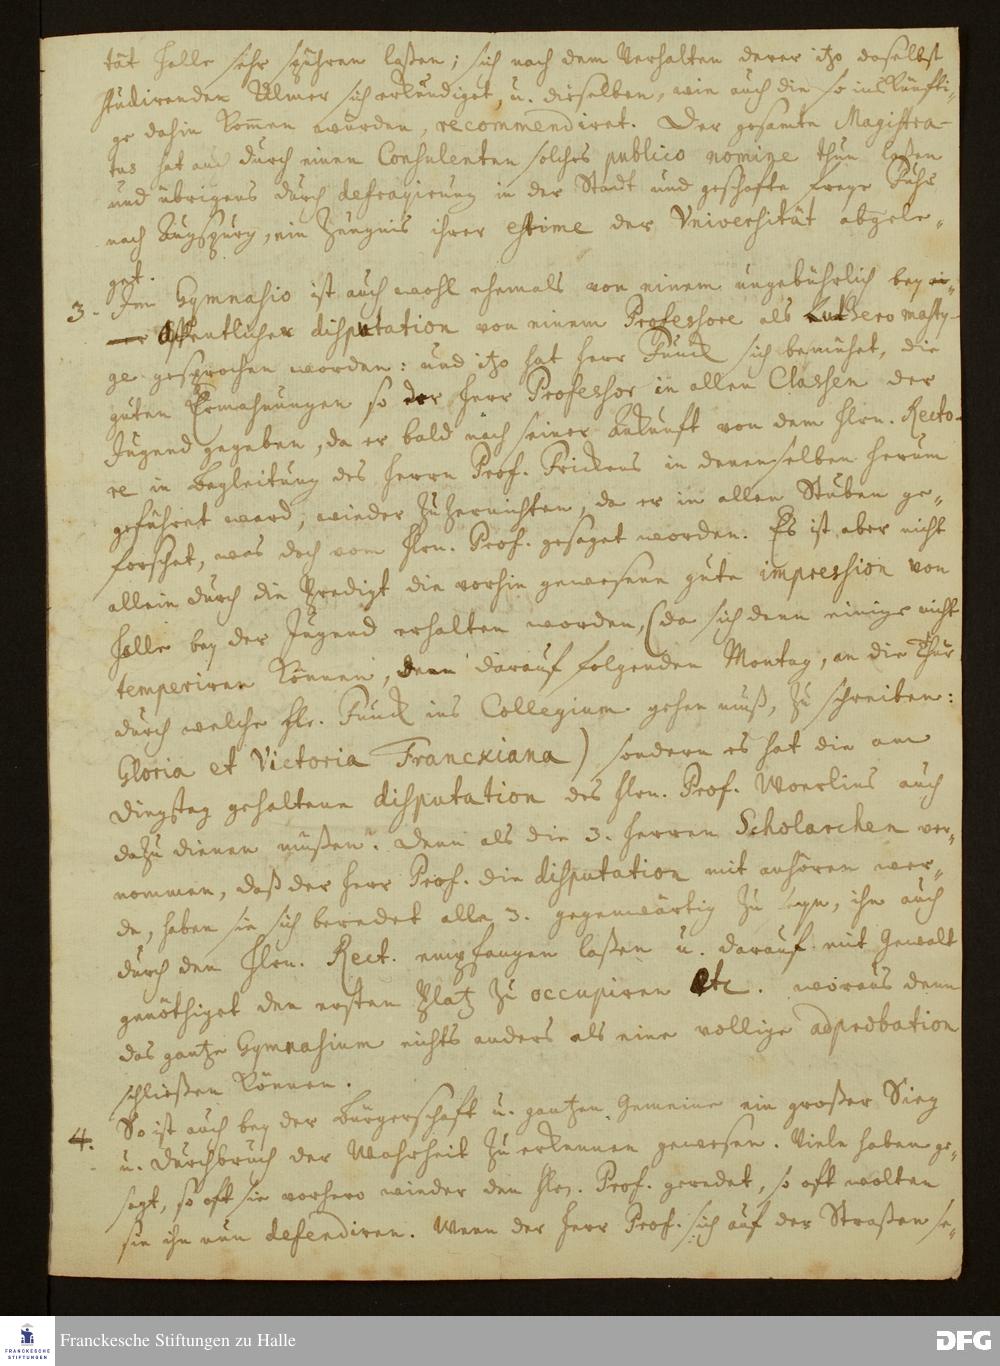 tät Halle sehr spühren laßen; sich nach dem Verhalten derer itzo daselbst
studirenden Ulmer sich erkundiget, u. dieselben, wie auch die so ins Künffti-
ge dahin kommen würden, recommendiret. Der gesamte Magistra-
tus hat auch durch einen Consulenten solches publico nomine thun laßen
und übrigens durch defragirung in der Stadt und geschafte freye Fuhr
nach Augspurg, ein Zeugnis ihrer estime der Vniversität abgele-
get.
3. Im Gymnasio ist auch wohl ehemals von einem ungebührlich bey
öffentlicher disputation von einem Professore als Luthero masty-
ge gesprochen worden: und itzo hat Herr Funck sich bemühet, die
guten Ermahnungen so der Herr Professor in allen Classen der
Jugend gegeben, da er bald nach seiner Ankunft von dem Hrn. Recto-
re in Begleitung des Herrn Prof. Frickens in denenselben herum
geführet ward, wieder zu zernichten, da er in allen Stuben ge-
forschet, was doch vom Hrn. Prof. gesaget worden. Es ist aber nicht
allein durch die Predigt die vorhin gewesene gute impression von
Halle bey der Jugend erhalten worden, (da sich denn einige nicht
temperiren können, den darauf folgenden Montag, an die Thür
durch welche Hr. Funck ins Collegium gehen muß, zu schreiben:
Gloria et Victoria Franckiana) sondern es hat die am
Dingstag gehaltene disputation des Hrn. Prof. Woerlins auch
dazu dienen müßen. Denn als die 3. Herren Scholarchen ver-
nommen, daß der Herr Prof. die disputation mit anhören wer-
de, haben sie sich beredet alle 3. gegenwärtig zu seyn, ihn auch
durch den Hrn. Rect. empfangen laßen u. darauf mit Gewalt
genöthiget den ersten Platz zu occupiren etc. woraus denn
das gantze Gymnasium nichts anders als eine vollige adprobation
schließen können.
4. So ist auch bey der Bürgerschaft u. gantzen Gemeine ein großer Sieg
u. Durchbruch der Wahrheit zu erkennen gewesen. Viele haben ge-
sagt, so oft sie vorhero wieder den Hrn. Prof. geredet, so oft wolten
sie ihn nun defendiren. Wenn der Herr Prof. sich auf der Straßen se-
FRANCKESCHE
STIFTUNGEN
Franckesche Stiftungen zu Halle
DFG